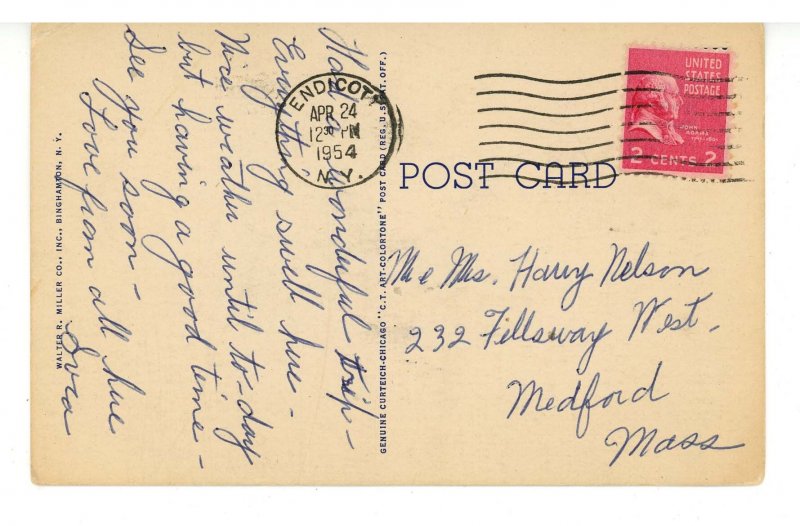 Had wonderful trip -
Everything swell here -
Nice weather until to-day
but having a good time -
See you soon -
Love from all here
WALTER R. MILLER CO., INC., BINGHAMTON, N. Y.
GENUINE CURTEICH-CHICAGO "C.T. ART-COLORTONE" POST CARD (REG. U.S. PAT. OFF.)
ENDICOTT
APR 24
12 30 PM
1954
N.Y.
UNITED
STATES
POSTAGE
JOHN
ADAMS
2 CENTS 2
POST CARD
Mr & Mrs. Harry Nelson
232 Fellsway West.
Medford
Mass